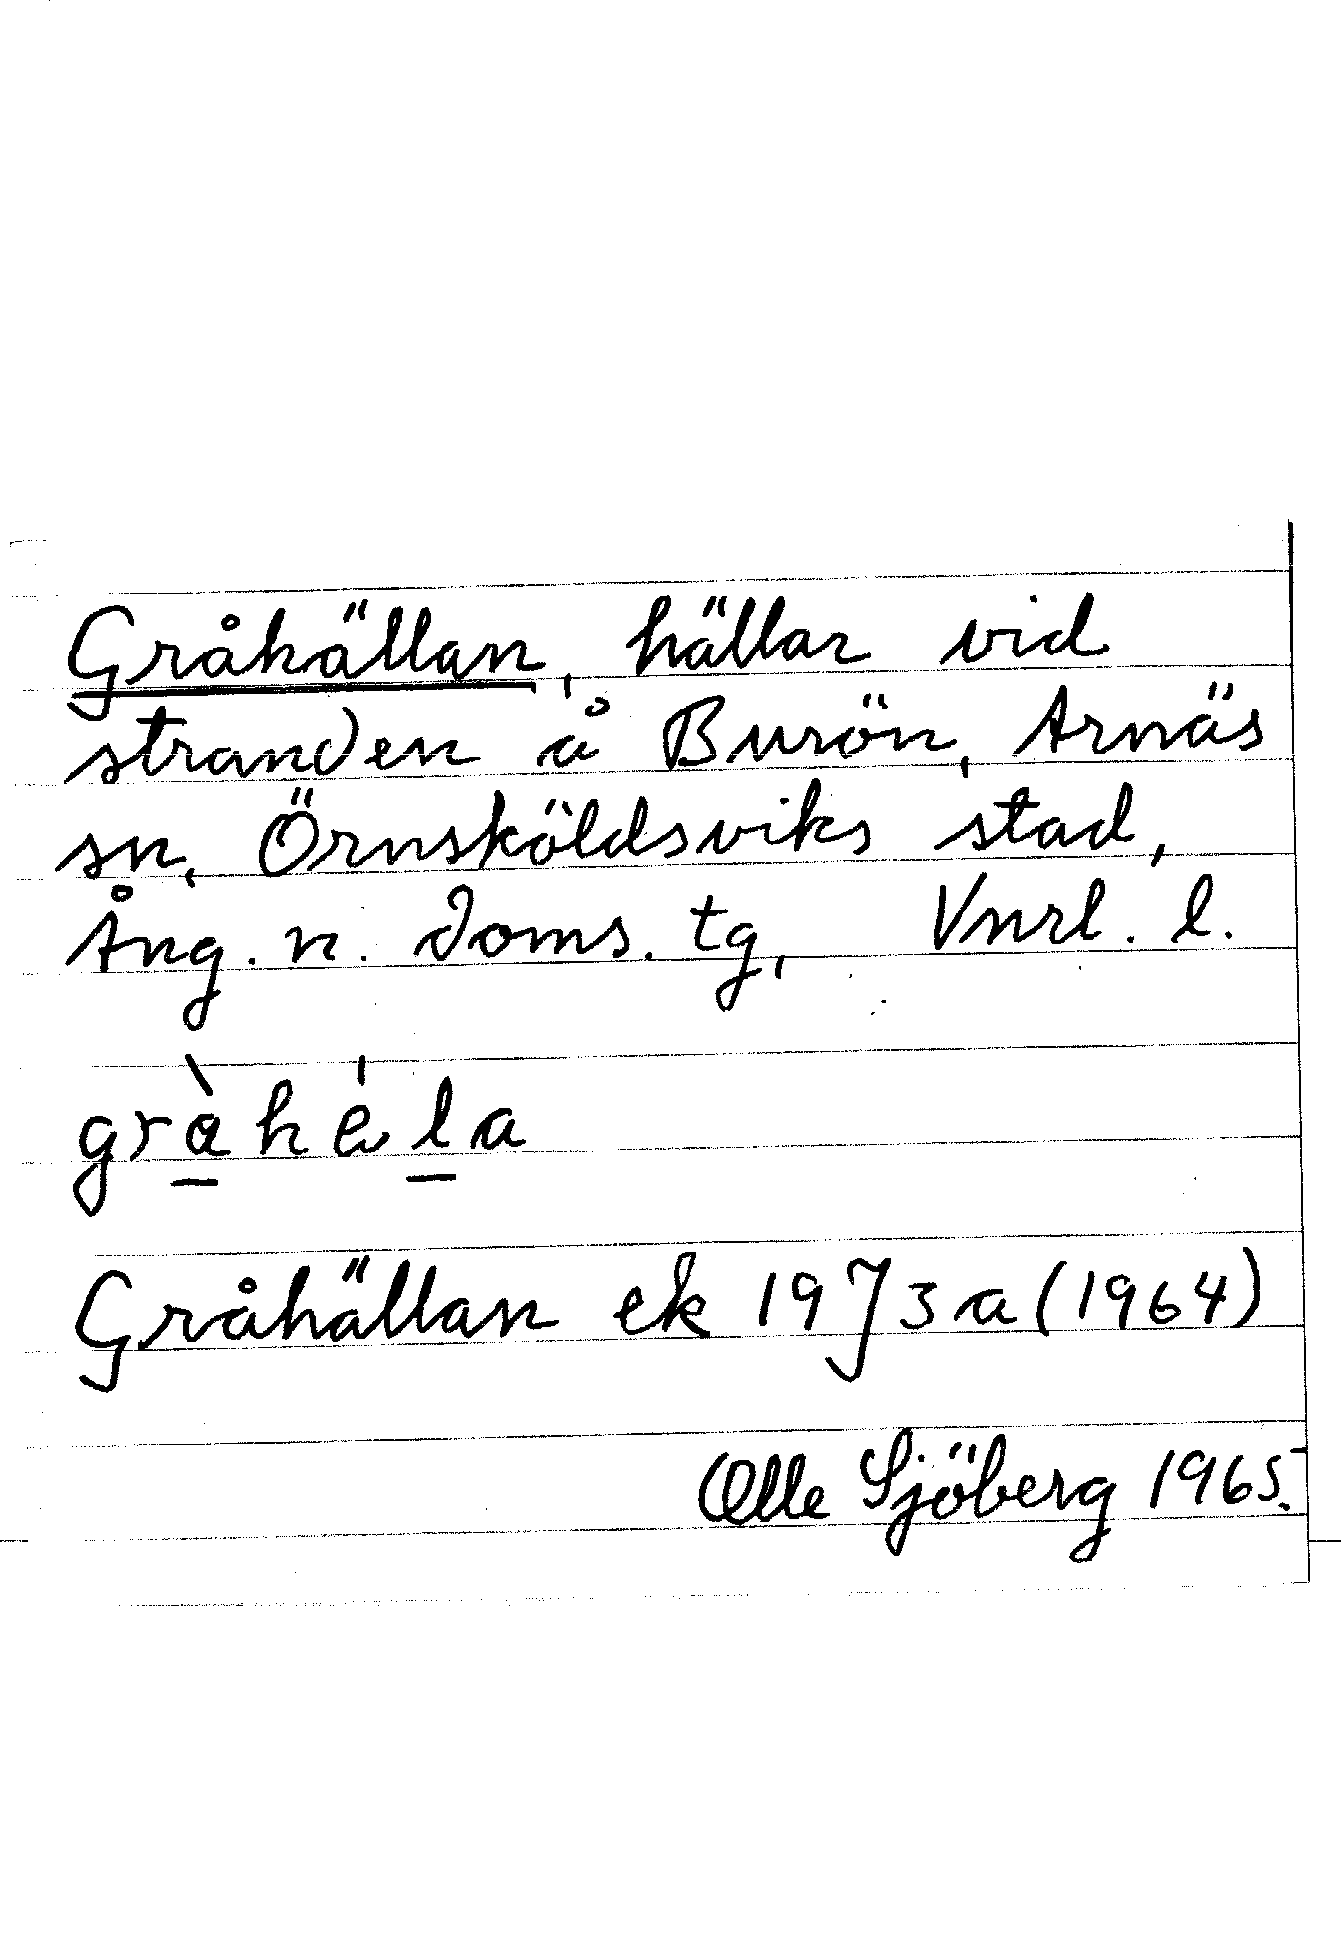 Gråhällan, hällar vid
stranden å Burön, Arnäs
sn, Örnsköldsviks stad,
Ång. n. doms. tg, Vnrl. l.
Gråhällan ek 19J3a (1964)
Olle Sjöberg 1965.